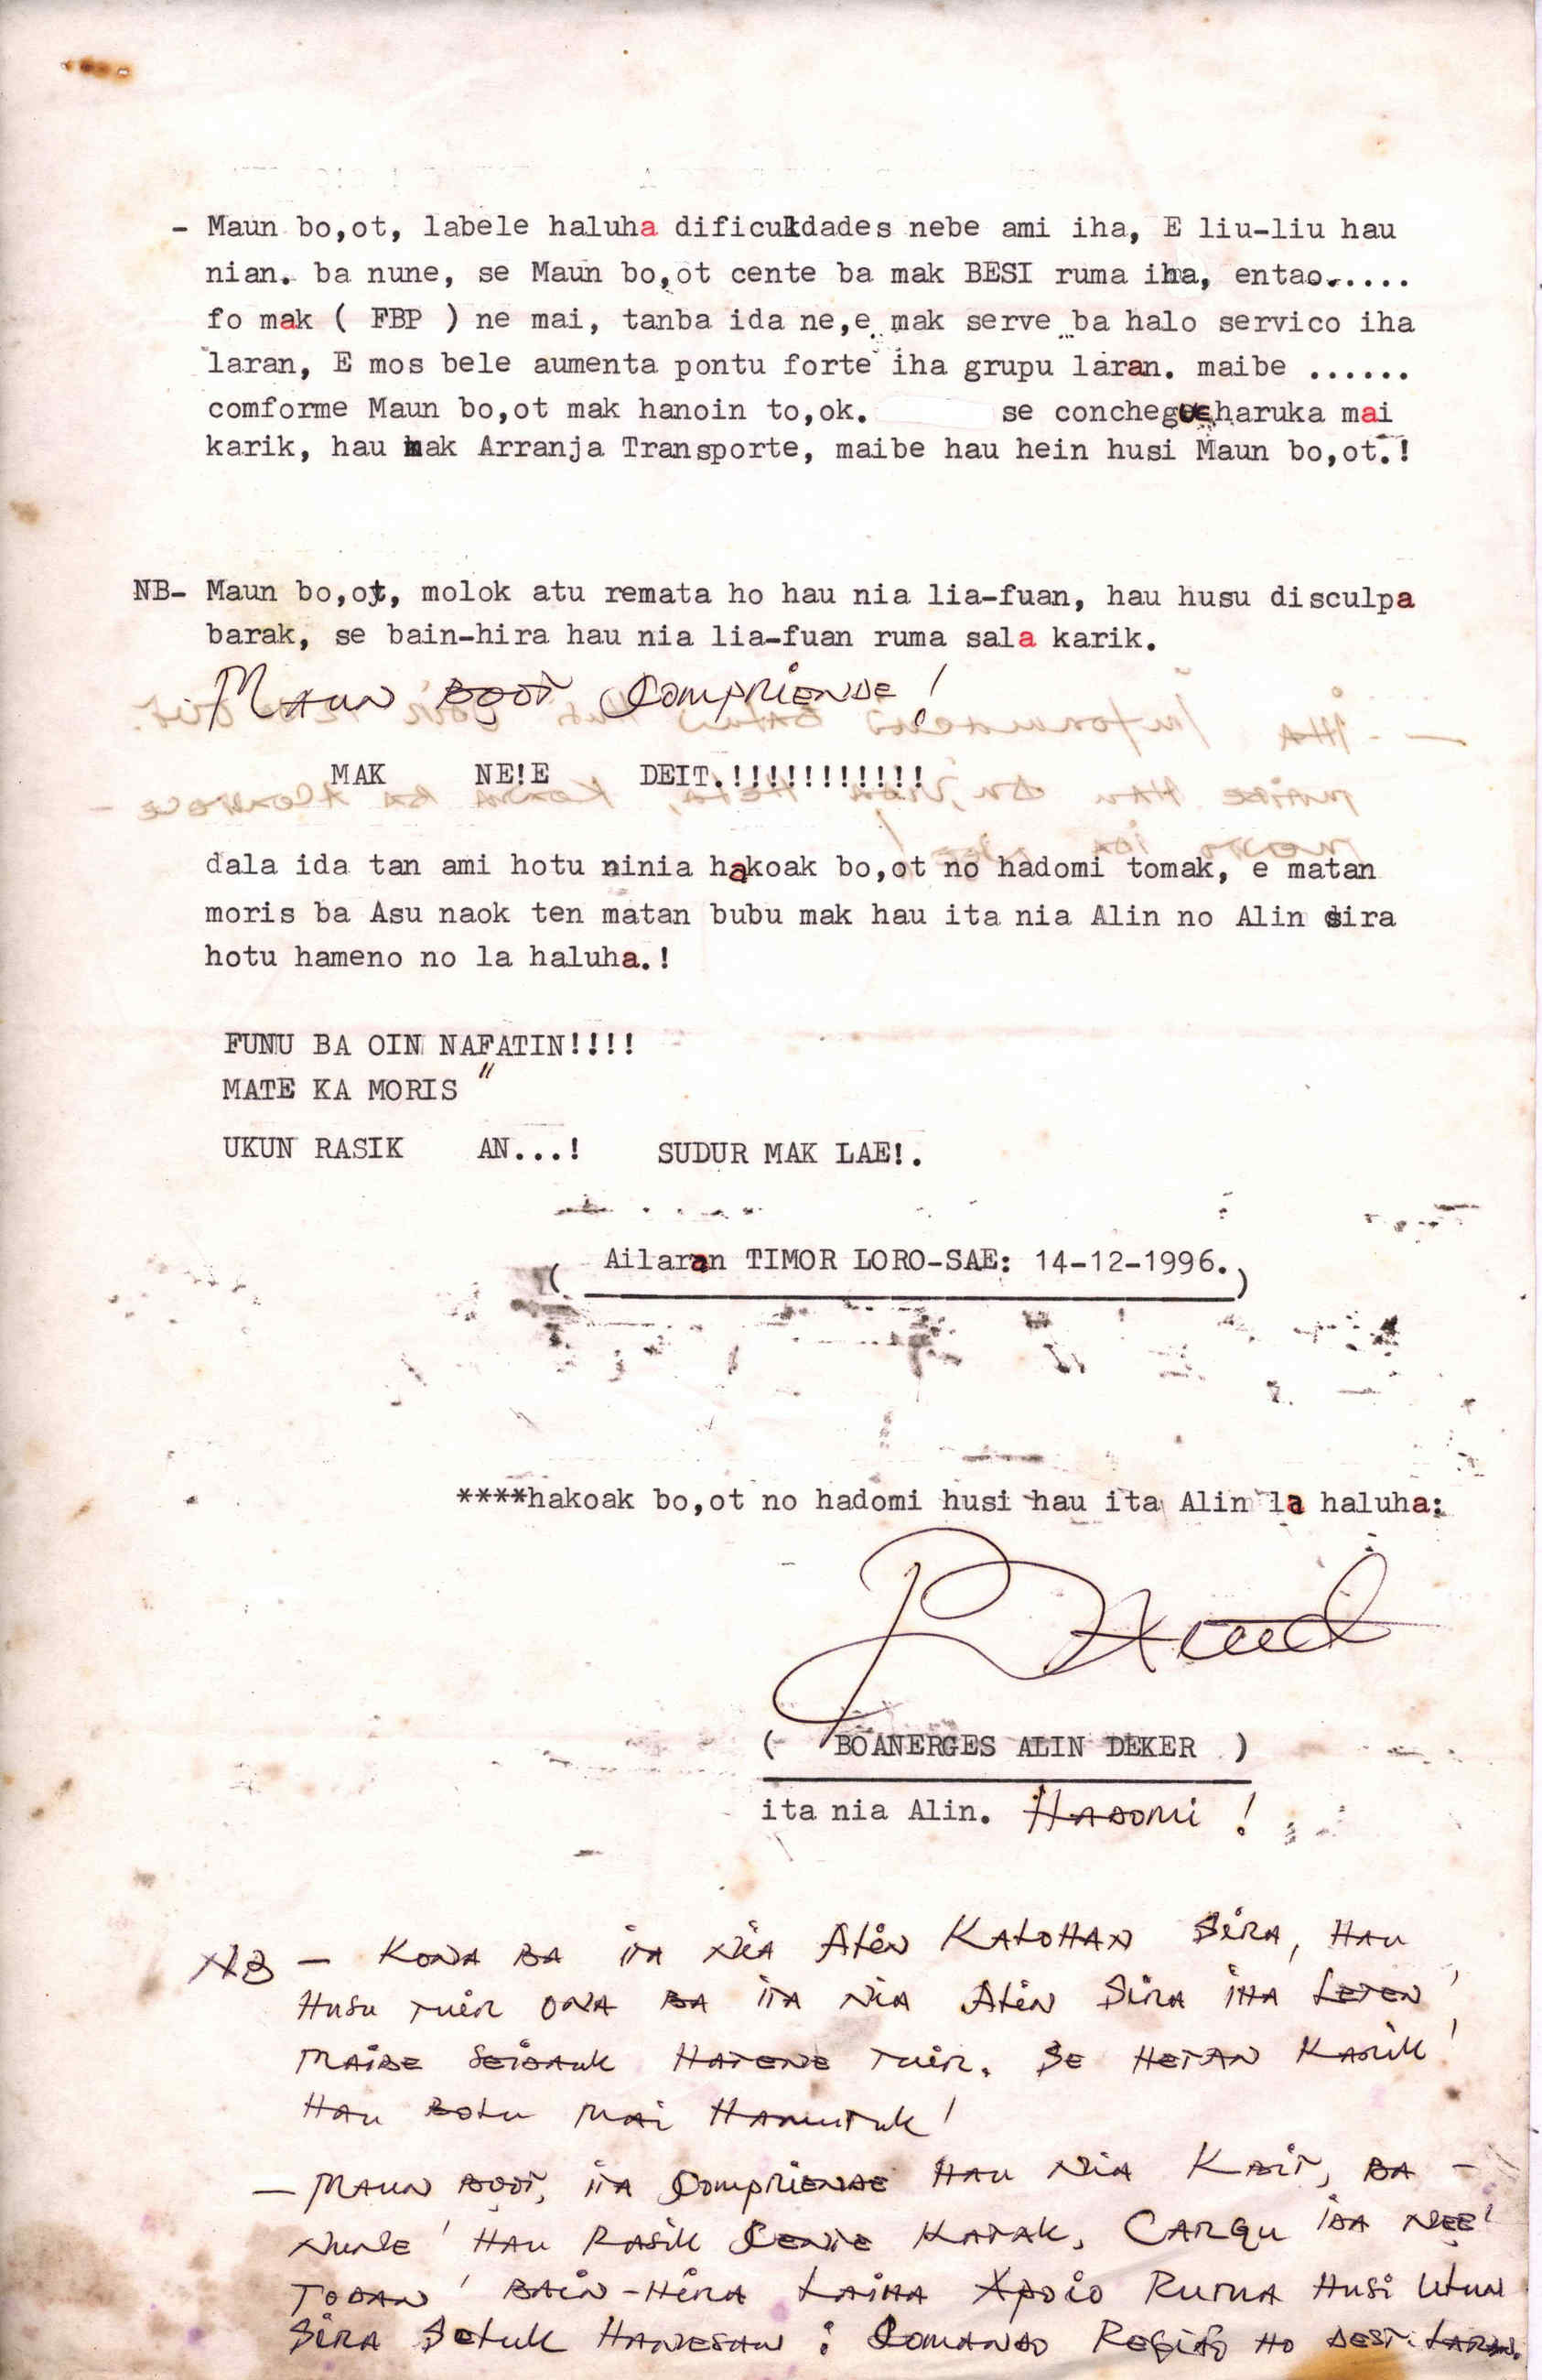 - Maun bo,ot, labele haluha dificuldades nebe ami iha, E liu-liu hau
nian. ba nune, se Maun bo,ot cente ba mak BESI ruma iha, entao......
fo mak ( FBP ) ne mai, tanba ida ne,e mak serve ba halo servico iha
laran, E mos bele aumenta pontu forte iha grupu laran. maibe ......
comforme Maun bo,ot mak hanoin to,ok. se conchegue haruka mai
karik, hau mak Arranja Transporte, maibe hau hein husi Maun bo,ot.!
NB- Maun bo,ot, molok atu remata ho hau nia lia-fuan, hau husu disculpa
barak, se bain-hira hau nia lia-fuan ruma sala karik.
MAUN BOOT COMPRIENDE!
MAK NE!E DEIT.!!!!!!!!!!!
dala ida tan ami hotu ninia hakoak bo,ot no hadomi tomak, e matan
moris ba Asu naok ten matan bubu mak hau ita nia Alin no Alin sira
hotu hameno no la haluha.!
FUNU BA OIN NAFATIN!!!!
MATE KA MORIS "
UKUN RASIK AN...! SUDUR MAK LAE!.
( Ailaran TIMOR LORO-SAE: 14-12-1996. )
****hakoak bo,ot no hadomi husi hau ita Alin la haluha:
( BOANERGES ALIN DEKER )
ita nia Alin. HADOMI !
NB - KONA BA ITA NIA ALIN KALOHAN SIRA, HAU
HUSU TUIR ONA BA ITA NIA ALIN SIRA IHA LETEN!
MAIBE SEIDAUK HATENE TUIR. SE HETAN KARIK!
HAU BOLU MAI HAMUTUK!
- MAUN BOOT, ITA COMPRIENDE HAU NIA KBIT, BA -
NUNE! HAU RASIK CENTE KATAK, CARGU IDA NEE!
TODAN! BAIN-HIRA LAIHA APOIO RUMA HUSI ULUN
SIRA SELUK HANESAN : COMANDO REGIÃO HO DEST. LARAN.